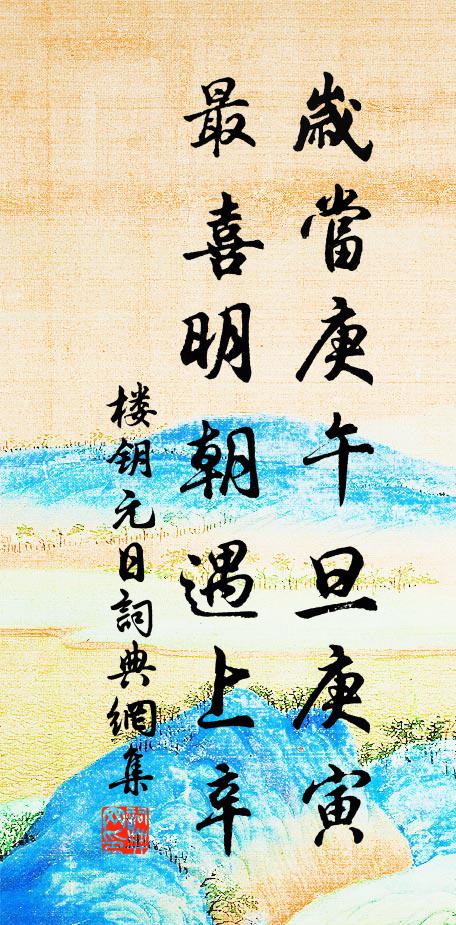 歲當庚午旦庚寅
最喜明朝遇上辛
楼钥元日詞典網集